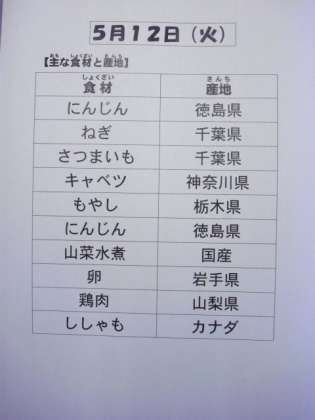 5月12日(火)
【主な食材と産地】
食材 産地
にんじん 徳島県
ねぎ 千葉県
さつまいも 千葉県
キャベツ 神奈川県
もやし 栃木県
にんじん 徳島県
山菜水煮 国産
卵 岩手県
鶏肉 山梨県
ししゃも カナダ